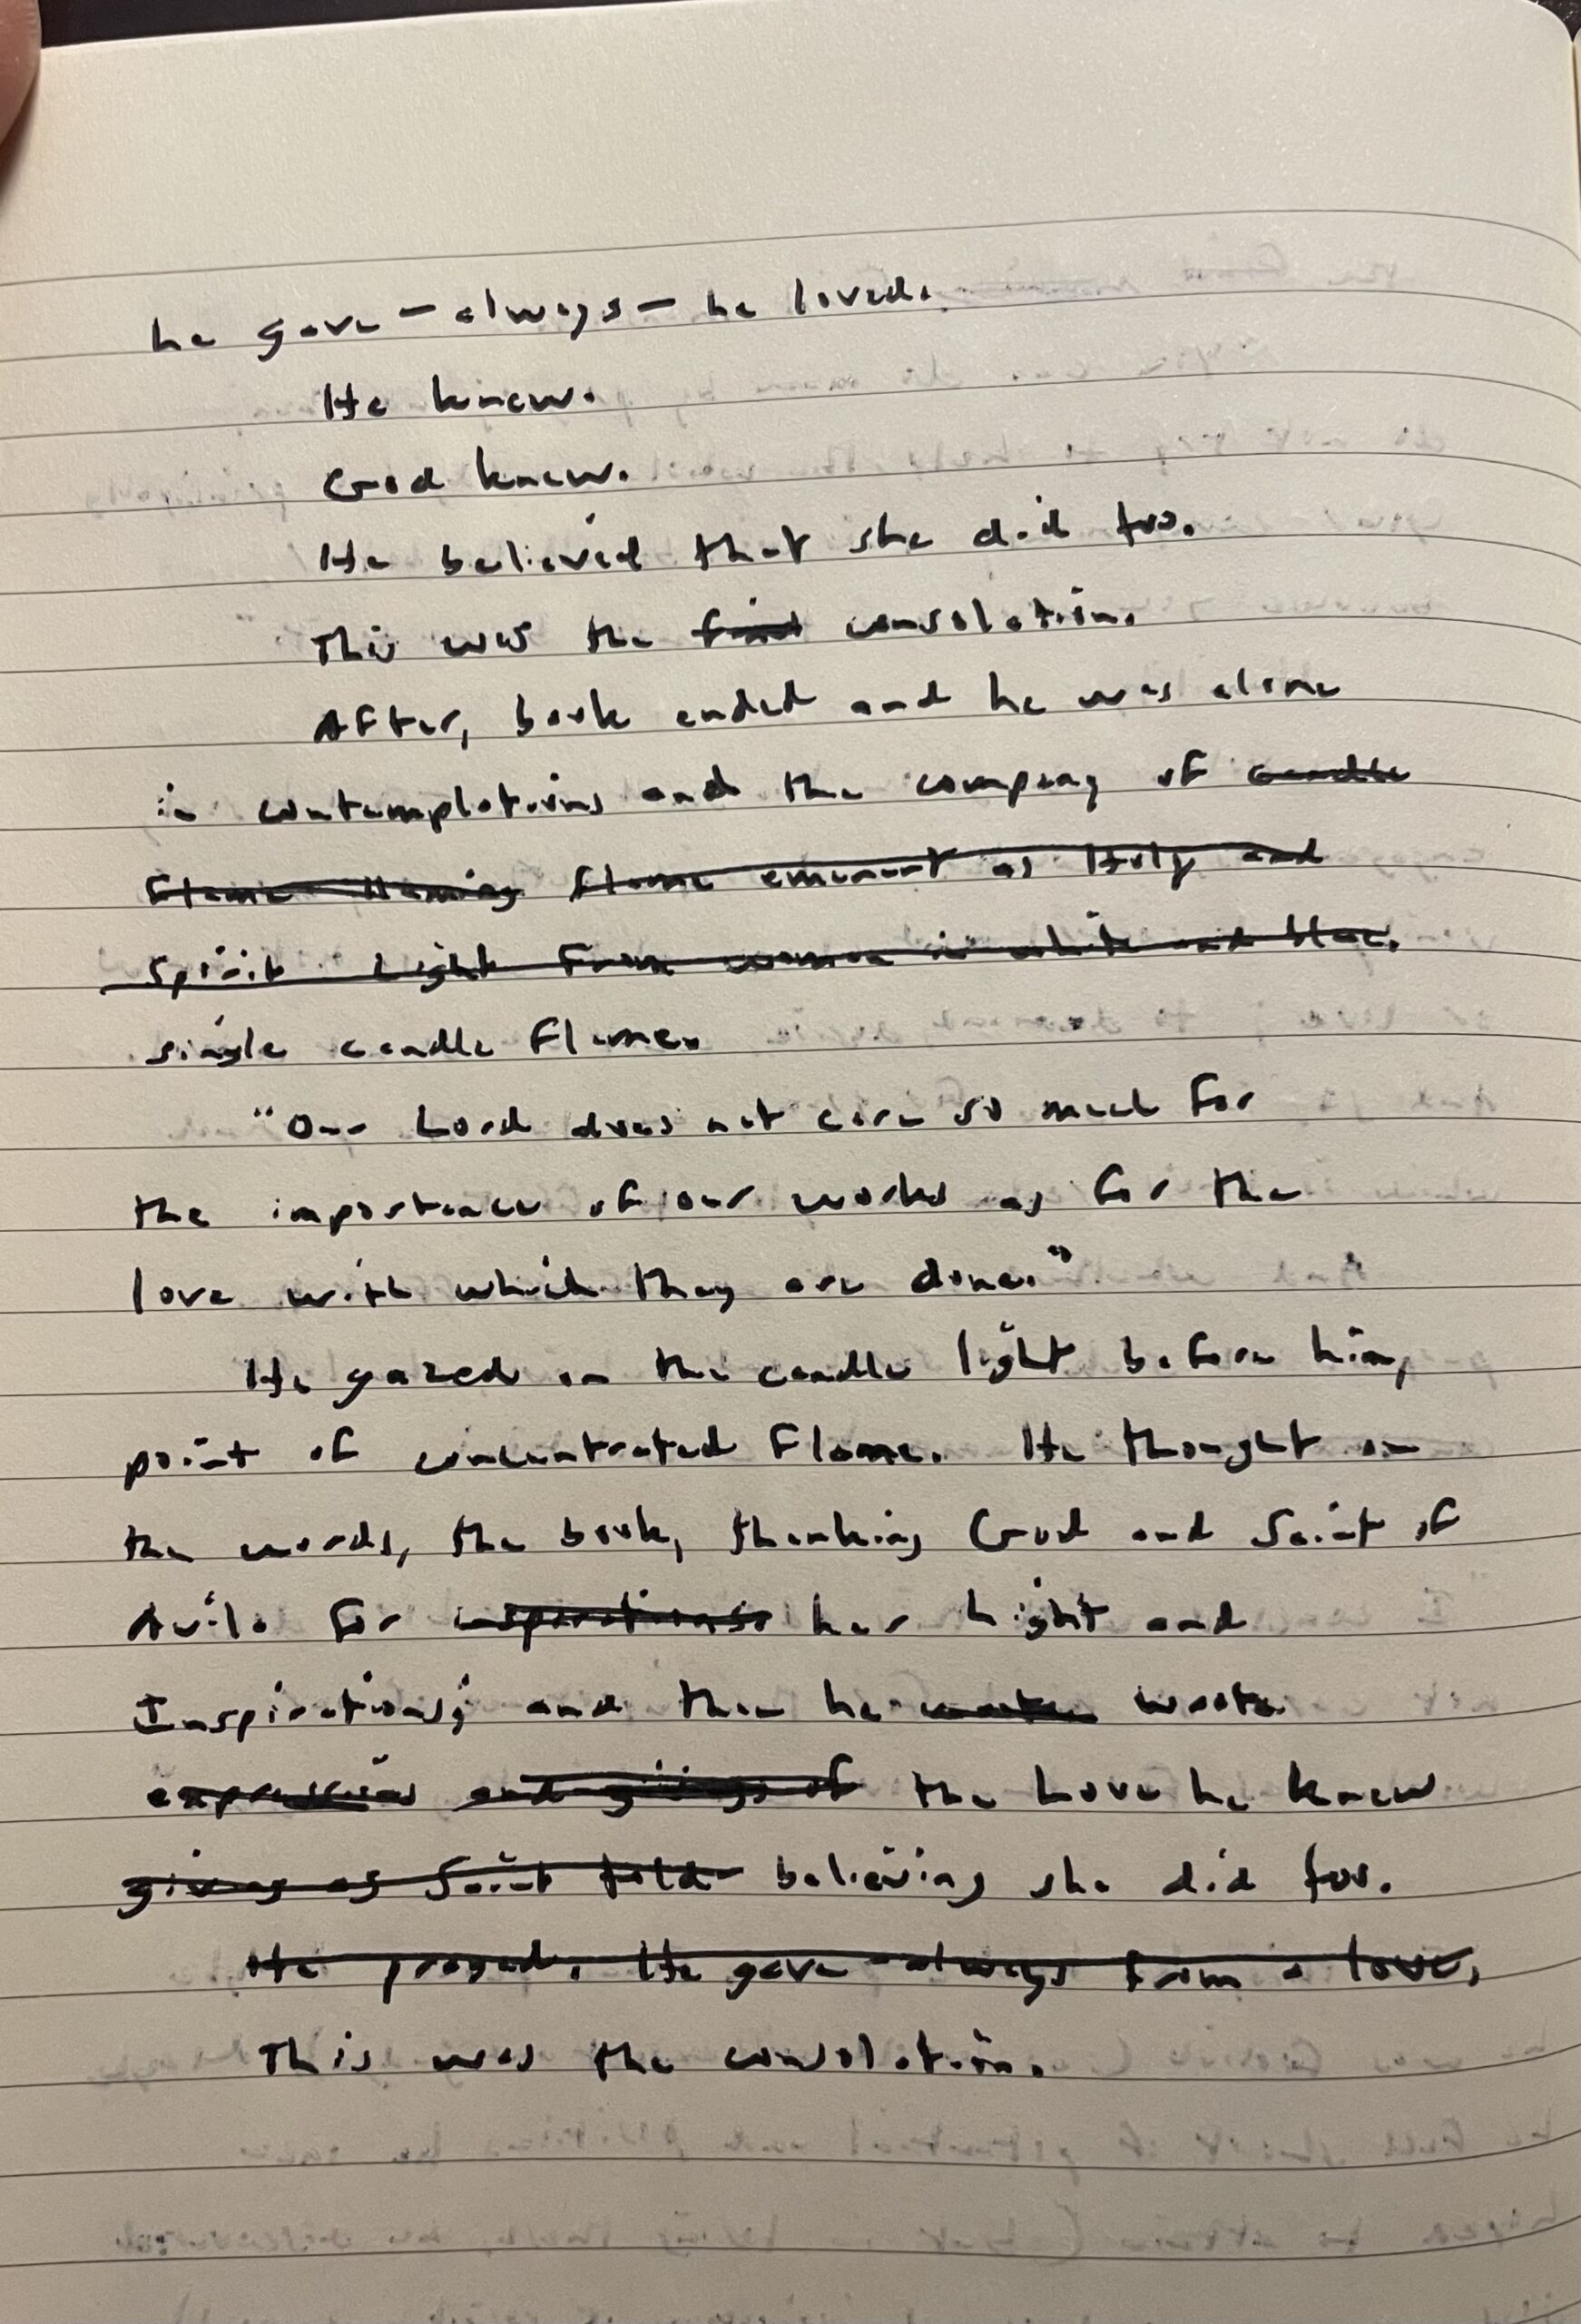 he gave – always – he loved.
He knew.
God knew.
He believed that she did too.
This was the consolation.
After, book ended and he was alone
in contemplations and the company of candle
Flame flame emanent as Holy and
Spirit Light From woman in white and blue.
single candle Flame.
"Our Lord does not care so much for
the importance of our works as for the
love with which they are done."
He gazed on the candle light before him,
point of concentrated Flame. He thought on
the words, the book, thanking God and Saint of
Avila for inspirations her Light and
Inspirations; and then he wrote
expression and givings of the Love he knew
giving as Saint told believing she did too.
He prayed. He gave always from a love.
This was the consolation.